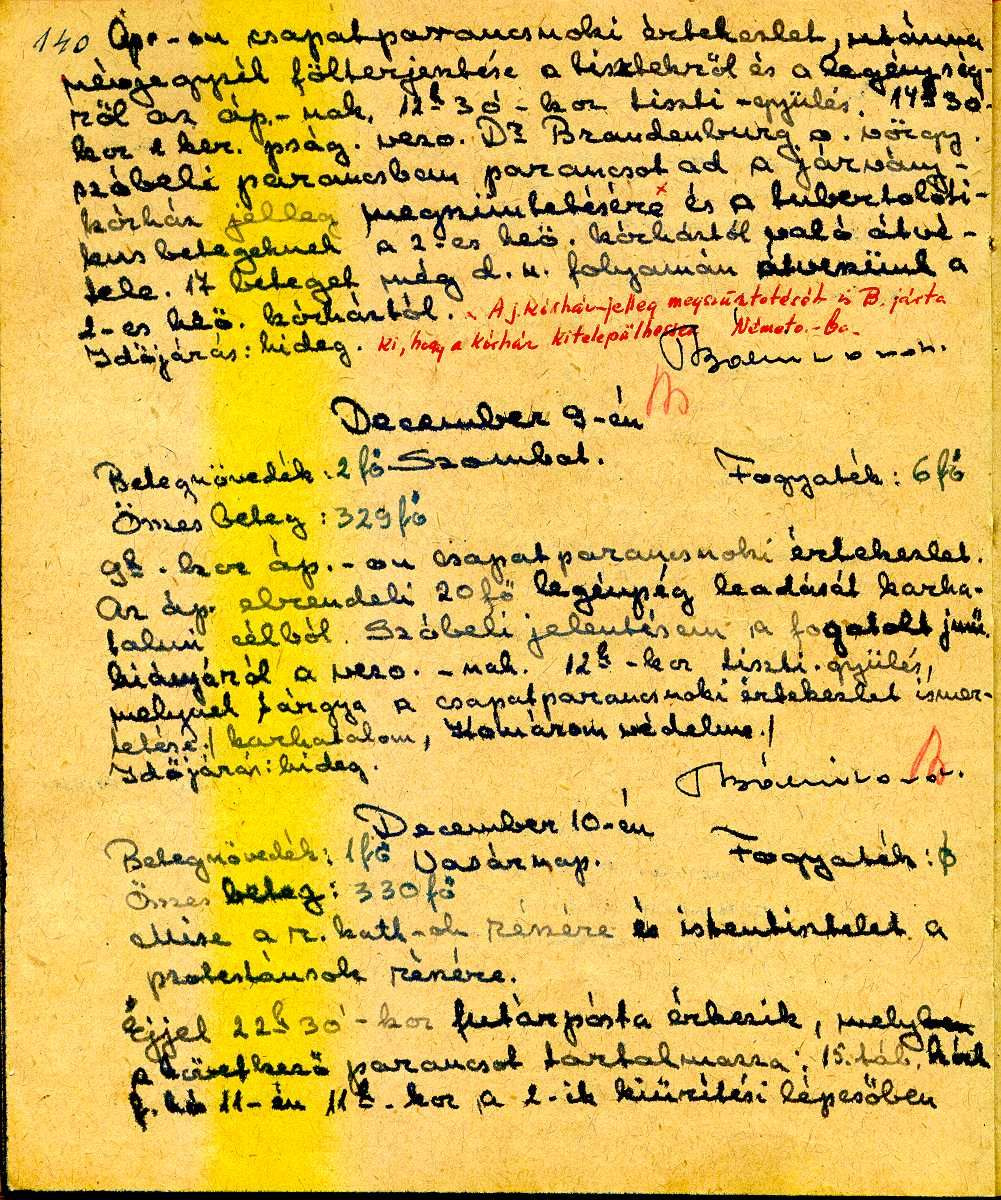 140 Áp.-on csapatparancsnoki értekezlet, utánna
névjegyzék fölterjesztése a tisztekről és a legénység-
ről az áp.-nak. 12h 30-kor tiszti-gyülés. 14h 30-
kor a ker. pság. vezo. Dr Brandenburg o. vörgy.
szóbeli parancsban parancsot ad a járvány-
kórház jelleg megszüntetésére x és a tubertoloti-
kus betegeknek a 2-es heö. kórháztól való átvé-
tele. 17 beteget még d. u. folyamán átveszünk a
2-es heö. kórháztól. x A j. kórház-jelleg megszüntetését is B. járta
Időjárás: hideg. ki, hogy a kórház kitelepülhessen Németo.-ba.
December 9-én
Betegnövedék: 2 fő Szombat. Fogyaték: 6 fő
Összes beteg: 329 fő
9h-kor áp.-on csapatparancsnoki értekezlet.
Az áp. elrendeli 20 fő legénység leadását karha-
talmi célból. Szóbeli jelentésem a fogatolt jmű.
hiányáról a vezo.-nak. 12h-kor tiszti gyülés,
melynek tárgya a csapatparancsnoki értekezlet ismer-
tetése./ karhatalom, Komárom védelme./
Időjárás: hideg.
December 10-én
Betegnövedék: 1 fő Vasárnap. Fogyaték: ø
Összes beteg: 330 fő
Mise a r. kath-ok részére és istentisztelet a
protestánsok részére.
Éjjel 22h 30-kor futárposta érkezik, mely
a következő parancsot tartalmazza: 15. táb. kórh
f. hó 11-én 11h-kor a 2-ik kiürítési lépcsőben